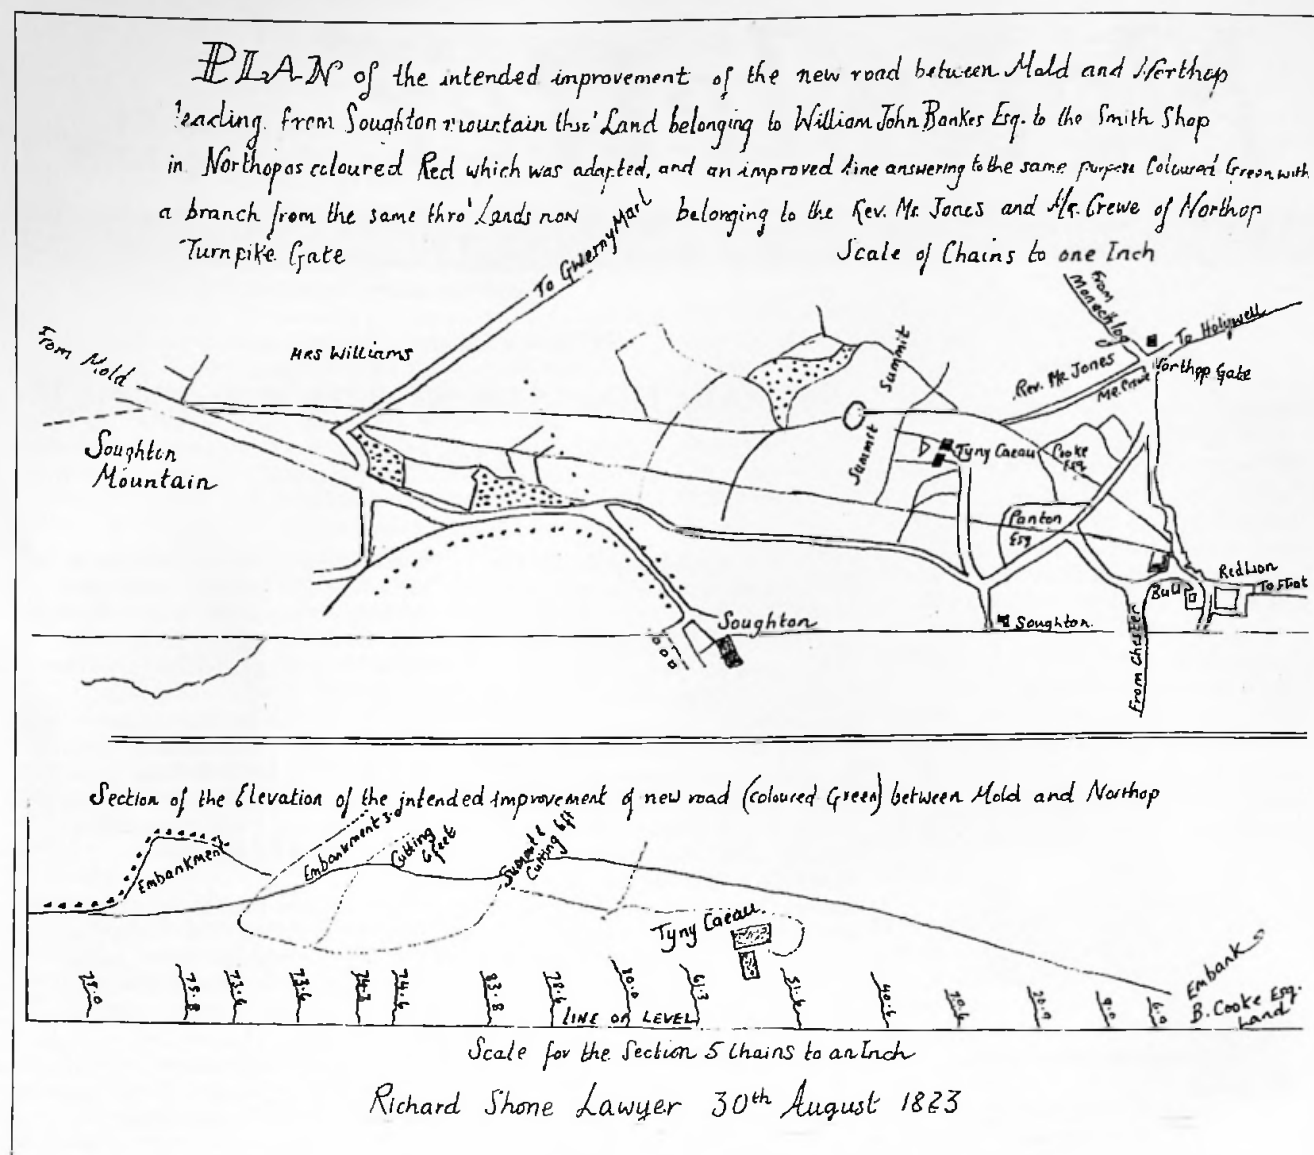 PLAN of the intended improvement of the new road between Mold and Northop
leading from Soughton mountain thro' Land belonging to William John Bankes Esq. to the Smith Shop
in Northop as coloured Red which was adapted, and an improved line answering to the same purpose Coloured Green with
a branch from the same thro' Lands now belonging to the Rev. Mr. Jones and Mr. Crewe of Northop
Turnpike Gate
Scale of Chains to one Inch
To Gwerny Marl
From Monachlog
To Holywell
From Mold
Mrs Williams
Summit
Rev. Mr. Jones
Mr. Crewe
Northop Gate
Soughton
Mountain
Summit
Tyny Caeau
Cooke
Esq
Panton
Esq
Red Lion
To Flint
Bull
Soughton
Soughton.
From Chester
Section of the Elevation of the intended improvement of new road (coloured Green) between Mold and Northop
Embankment
Embankment 3.0
Cutting
6 feet
Summit &
Cutting 6ft
Tyny Caeau
Embank
B. Cooke Esq.
Land
79.0
75.8
73.6
73.6
74.3
74.6
83.8
78.6
70.0
61.3
51.6
40.6
20.0
9.0
6.0
LINE OR LEVEL
Scale for the Section 5 Chains to an Inch
Richard Shone Lawyer 30th August 1823